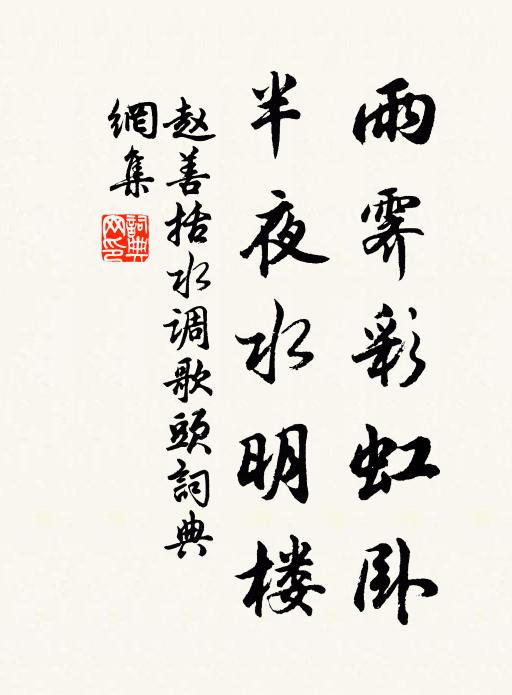 雨霽彩虹卧
半夜水明楼
赵善括水调歌頭詞典
網集
詞典网印